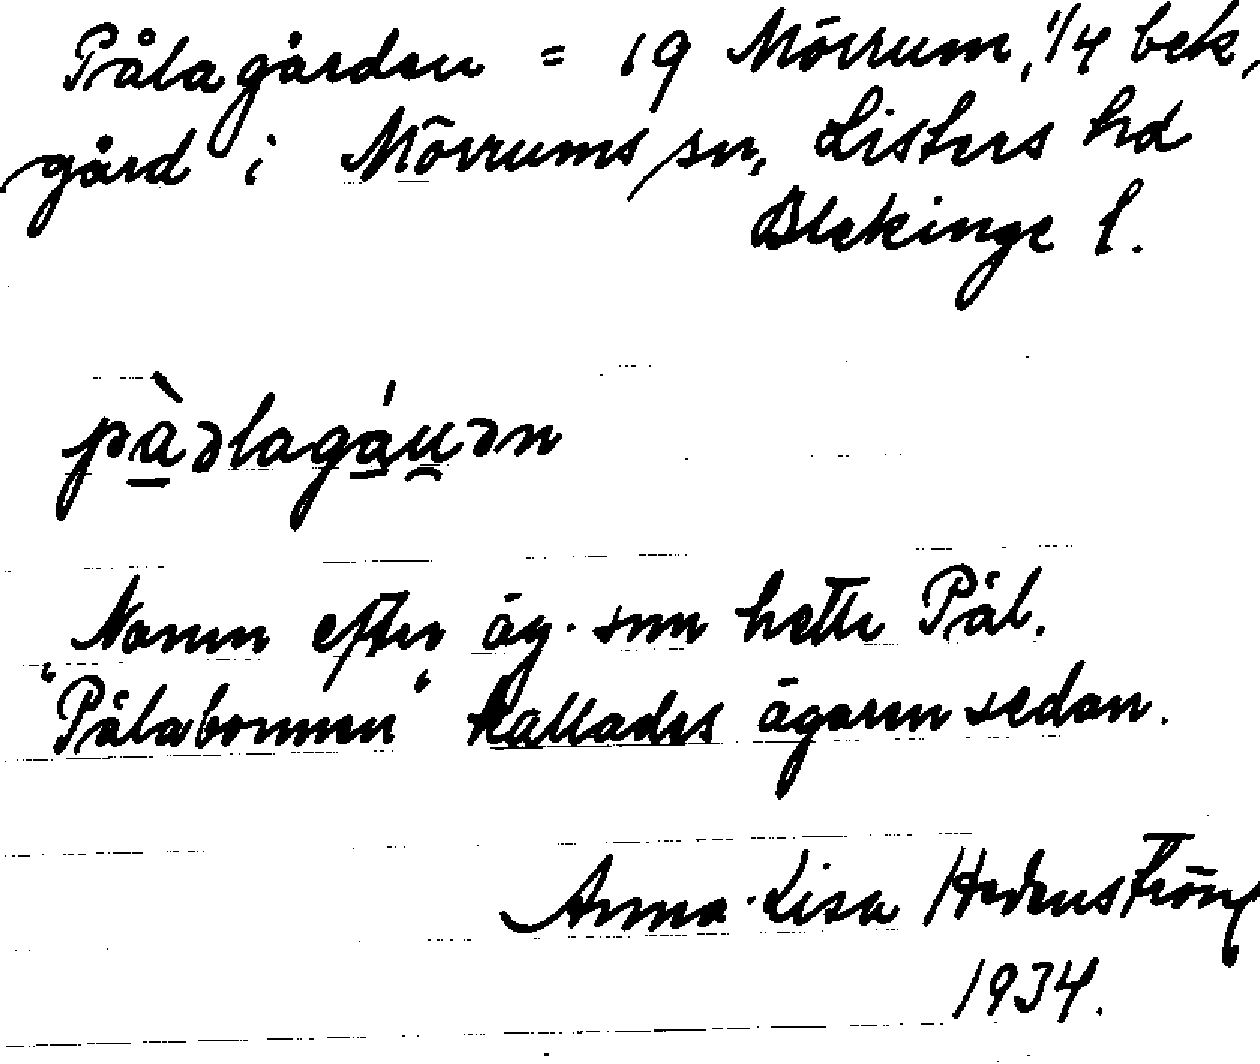 Pålagården = 19 Mörrum, 1/4 bek,
gård i Mörrums sn, Listers hd
Blekinge l.
pàəlagáu̯ən
Namn efter äg. som hette Pål.
"Pålabonnen" kallades ägaren sedan.
Anna-Lisa Hedenström
1934.